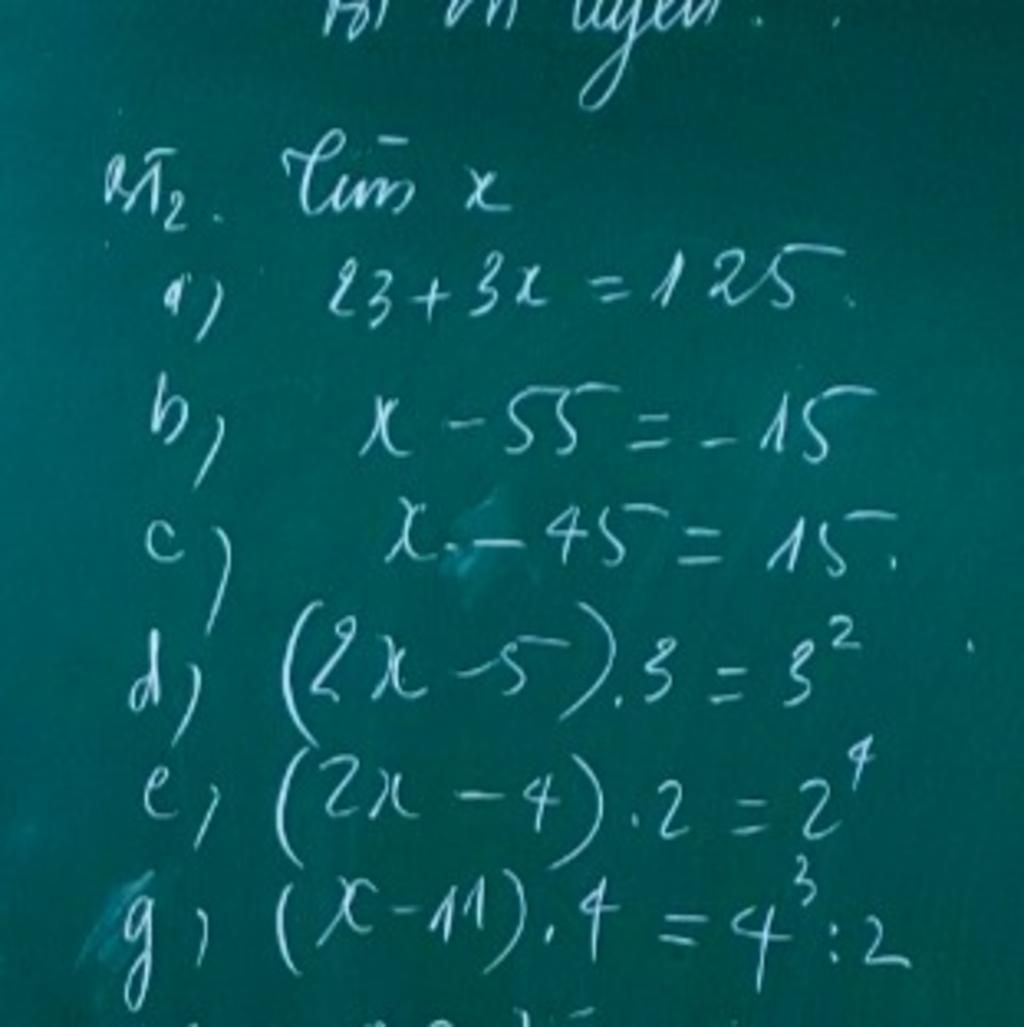 BT2. Tìm x
a) 23 + 3x = 125.
b) x - 55 = -15
c) x - 45 = 15.
d) (2x - 5).3 = 3²
e) (2x - 4).2 = 2⁴
g) (x - 11).4 = 4³:2